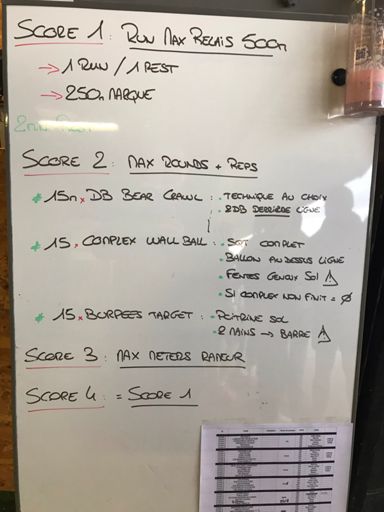 SCORE 1 : RUN MAX RELAIS 500m
→ 1 RUN / 1 REST
→ 250m MARQUE
2mn REST
SCORE 2 : MAX ROUNDS + REPS
* 15m x DB BEAR CRAWL : . TECHNIQUE AU CHOIX
. 2DB DERRIÈRE LIGNE
* 15 x COMPLEX WALL BALL : . SQT COMPLET
. BALLON AU DESSUS LIGNE
. FENTES GENOUX SOL ⚠
. SI COMPLEX NON FINIT = Ø
* 15 x BURPEES TARGET : . POITRINE SOL
. 2 MAINS → BARRE ⚠
SCORE 3 : MAX METERS RAMEUR
SCORE 4 : = SCORE 1